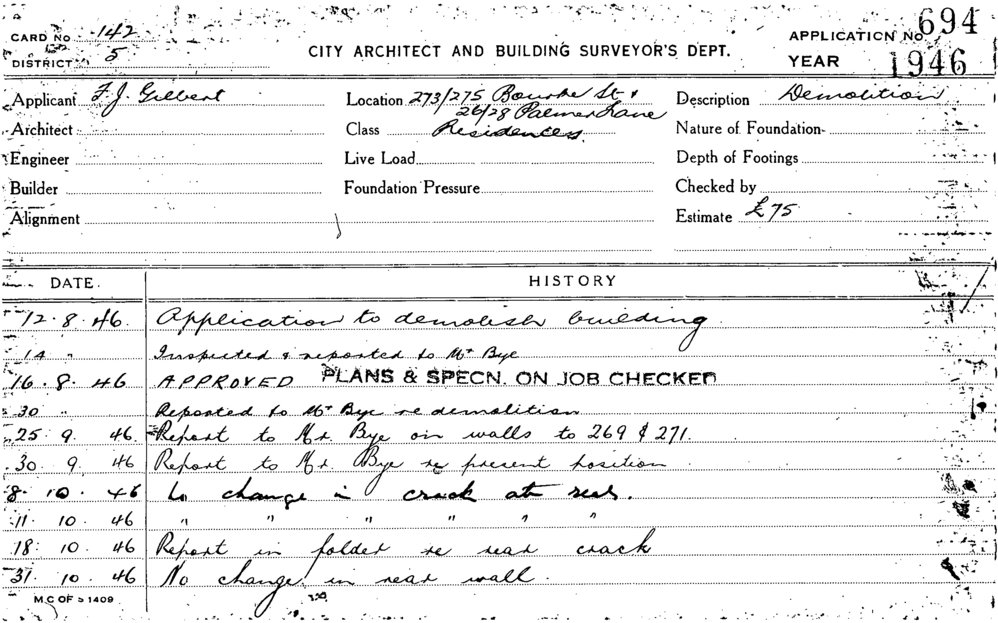 CARD No 142
DISTRICT 5
CITY ARCHITECT AND BUILDING SURVEYOR'S DEPT.
APPLICATION No. 694
YEAR 1946
Applicant F. J. Gilbert
Location 273/275 Bourke St &
26/28 Palmer Lane
Description Demolition
Architect
Class Residences
Nature of Foundation
Engineer
Live Load
Depth of Footings
Builder
Foundation Pressure
Checked by
Alignment
Estimate £75
DATE. HISTORY
12.8.46. Application to demolish building
14 " Inspected & reported to Mr Bye
16.8.46 APPROVED PLANS & SPECN. ON JOB CHECKED
30 " Reported to Mr Bye re demolition
25 9. 46. Report to Mr. Bye on walls to 269 & 271.
30. 9. 46 Report to Mr Bye re present position
8. 10. 46 change in crack at rear.
11. 10. 46 " " " " " "
18. 10. 46 Report in folder re rear crack
31. 10. 46 No change in rear wall.
M.C OF S 1409